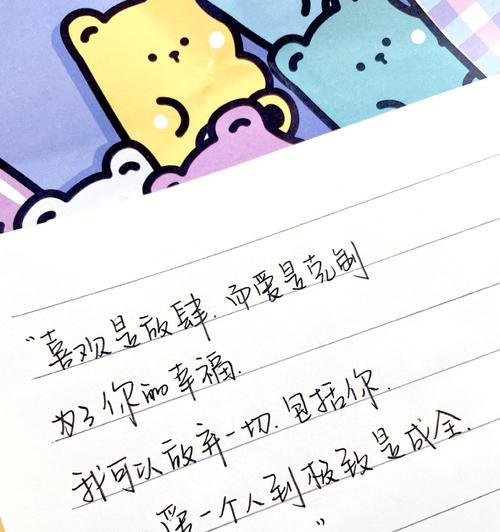 “喜欢是放肆.而爱是克制
为了你的幸福.
我可以放弃一切.包括你.
爱一个人到极致是成全.
”